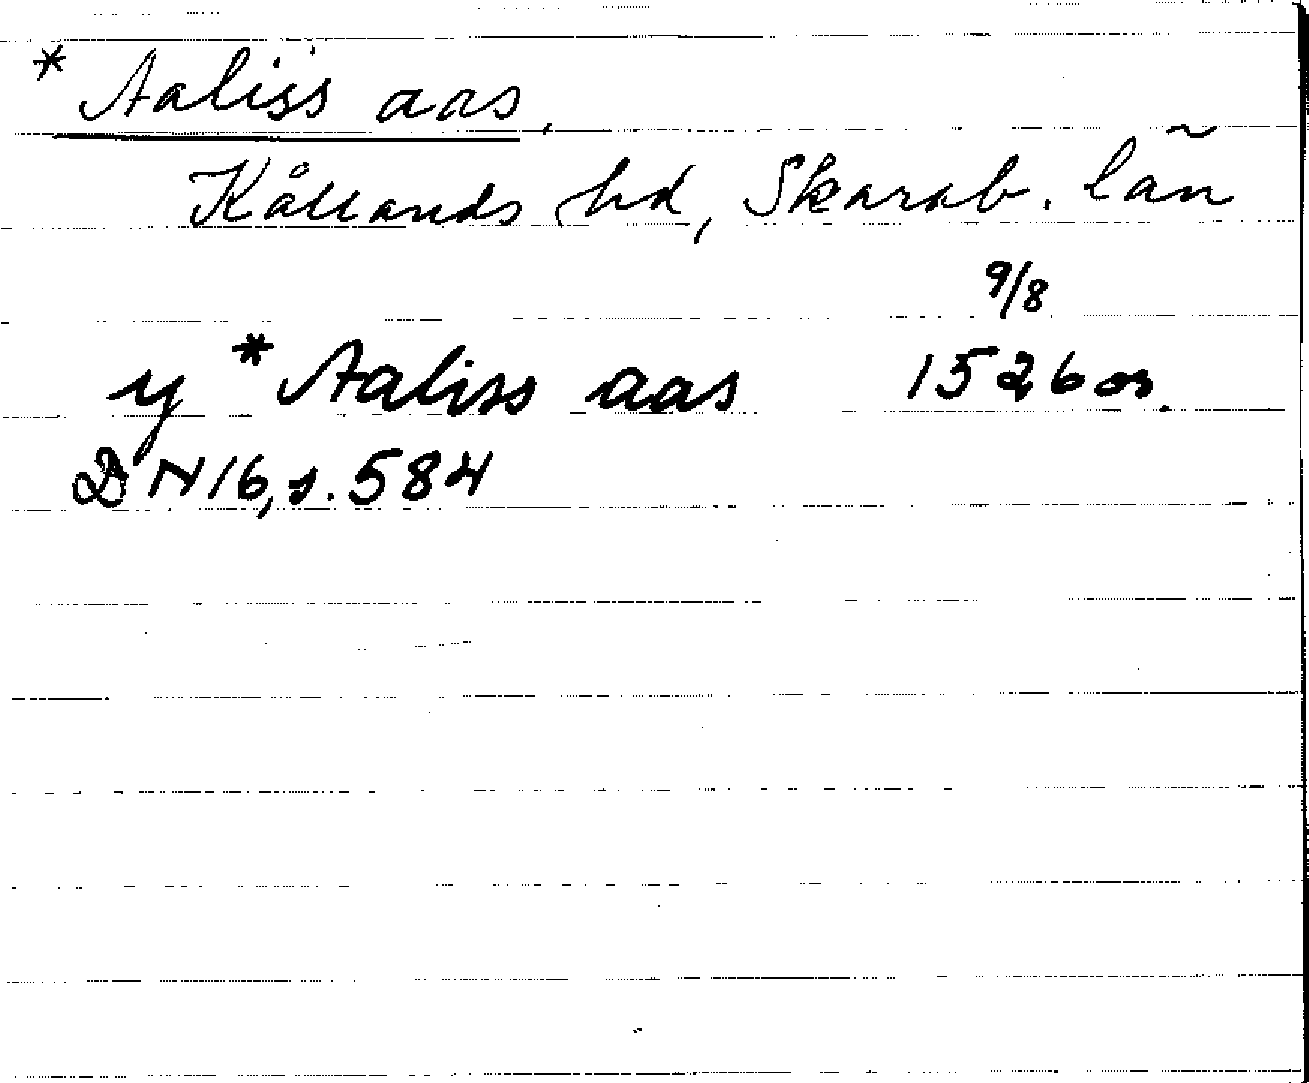 * Aaliss aas,
Kållands hd, Skarab. län
9/8
y * Aaliss aas 1526 or.
DN 16, s. 584